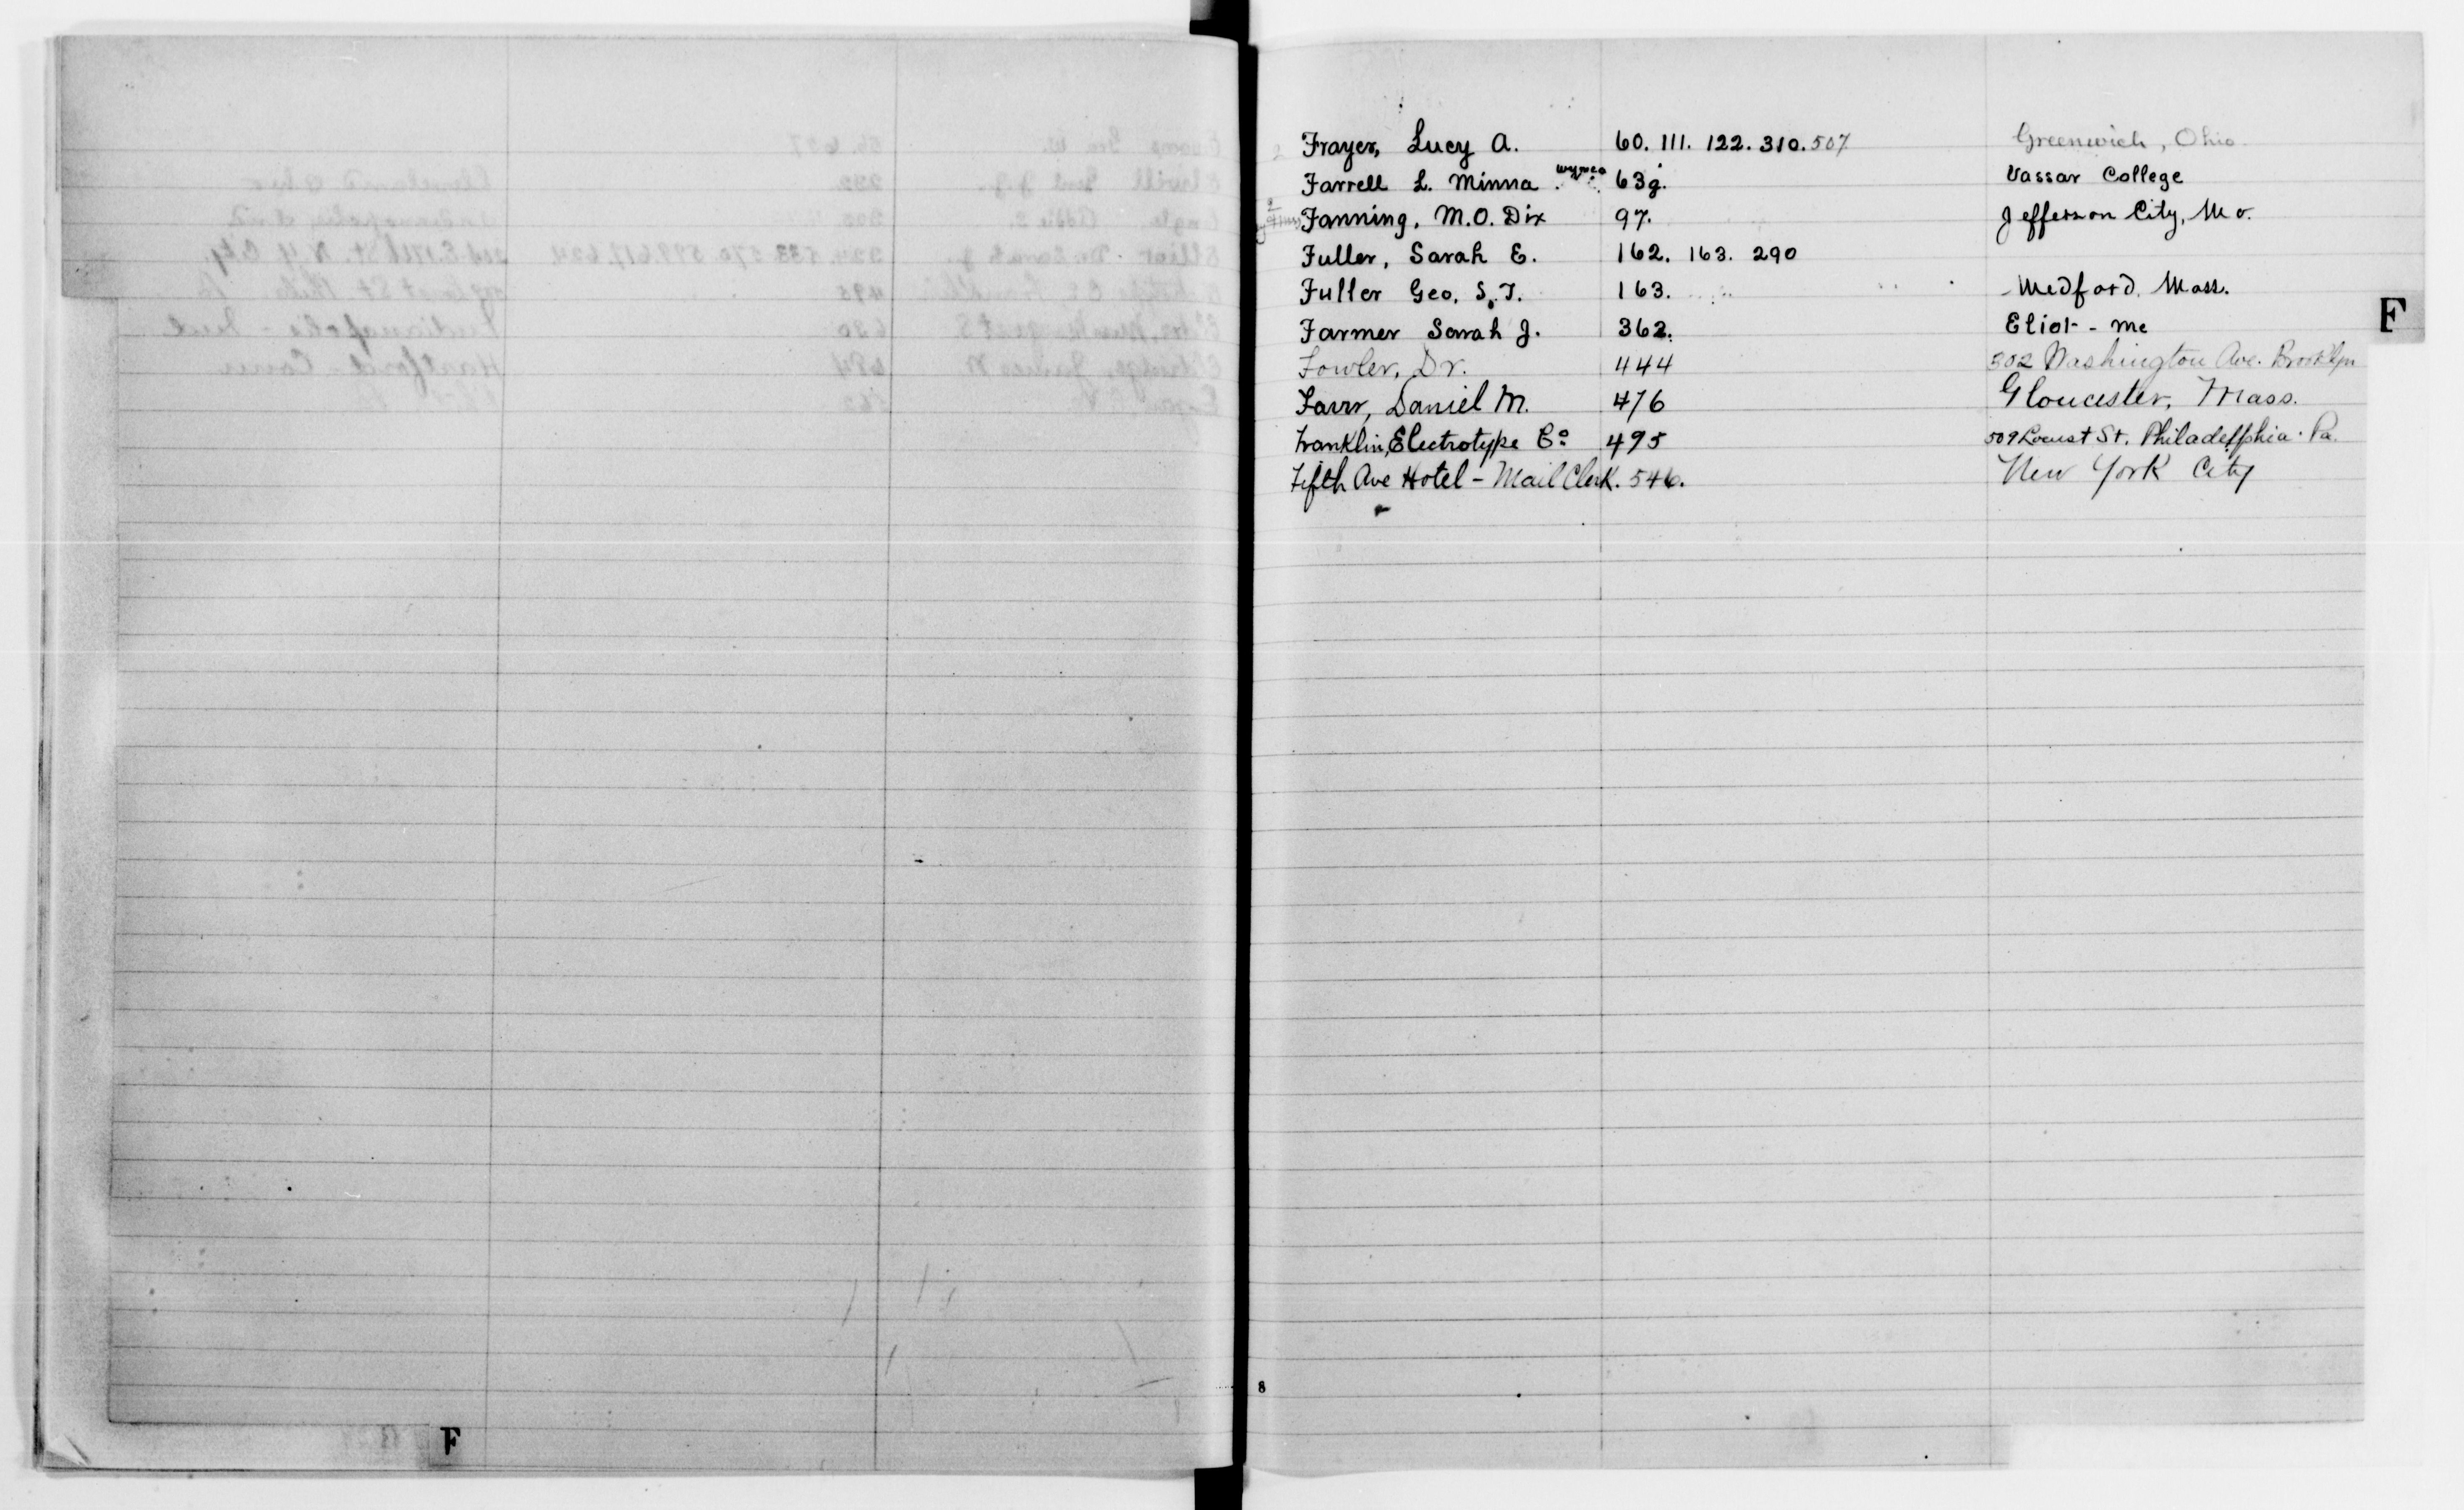 Frayer, Lucy A. 60. 111. 122. 310. 507 Greenwich, Ohio.
Farrell L. Minna 63g. Vassar College
Fanning, M.O. Dix 97. Jefferson City, Mo.
Fuller, Sarah E. 162. 163. 290
Fuller Geo. S. T. 163. Medford. Mass.
Farmer Sarah J. 362. Eliot - Me
Fowler, Dr. 444 502 Washington Ave. Brooklyn
Farr, Daniel M. 476 Gloucester, Mass.
Franklin, Electrotype Co 495 509 Locust St. Philadelphia. Pa.
Fifth Ave Hotel - Mail Clerk. 546. New York City
F
8
F